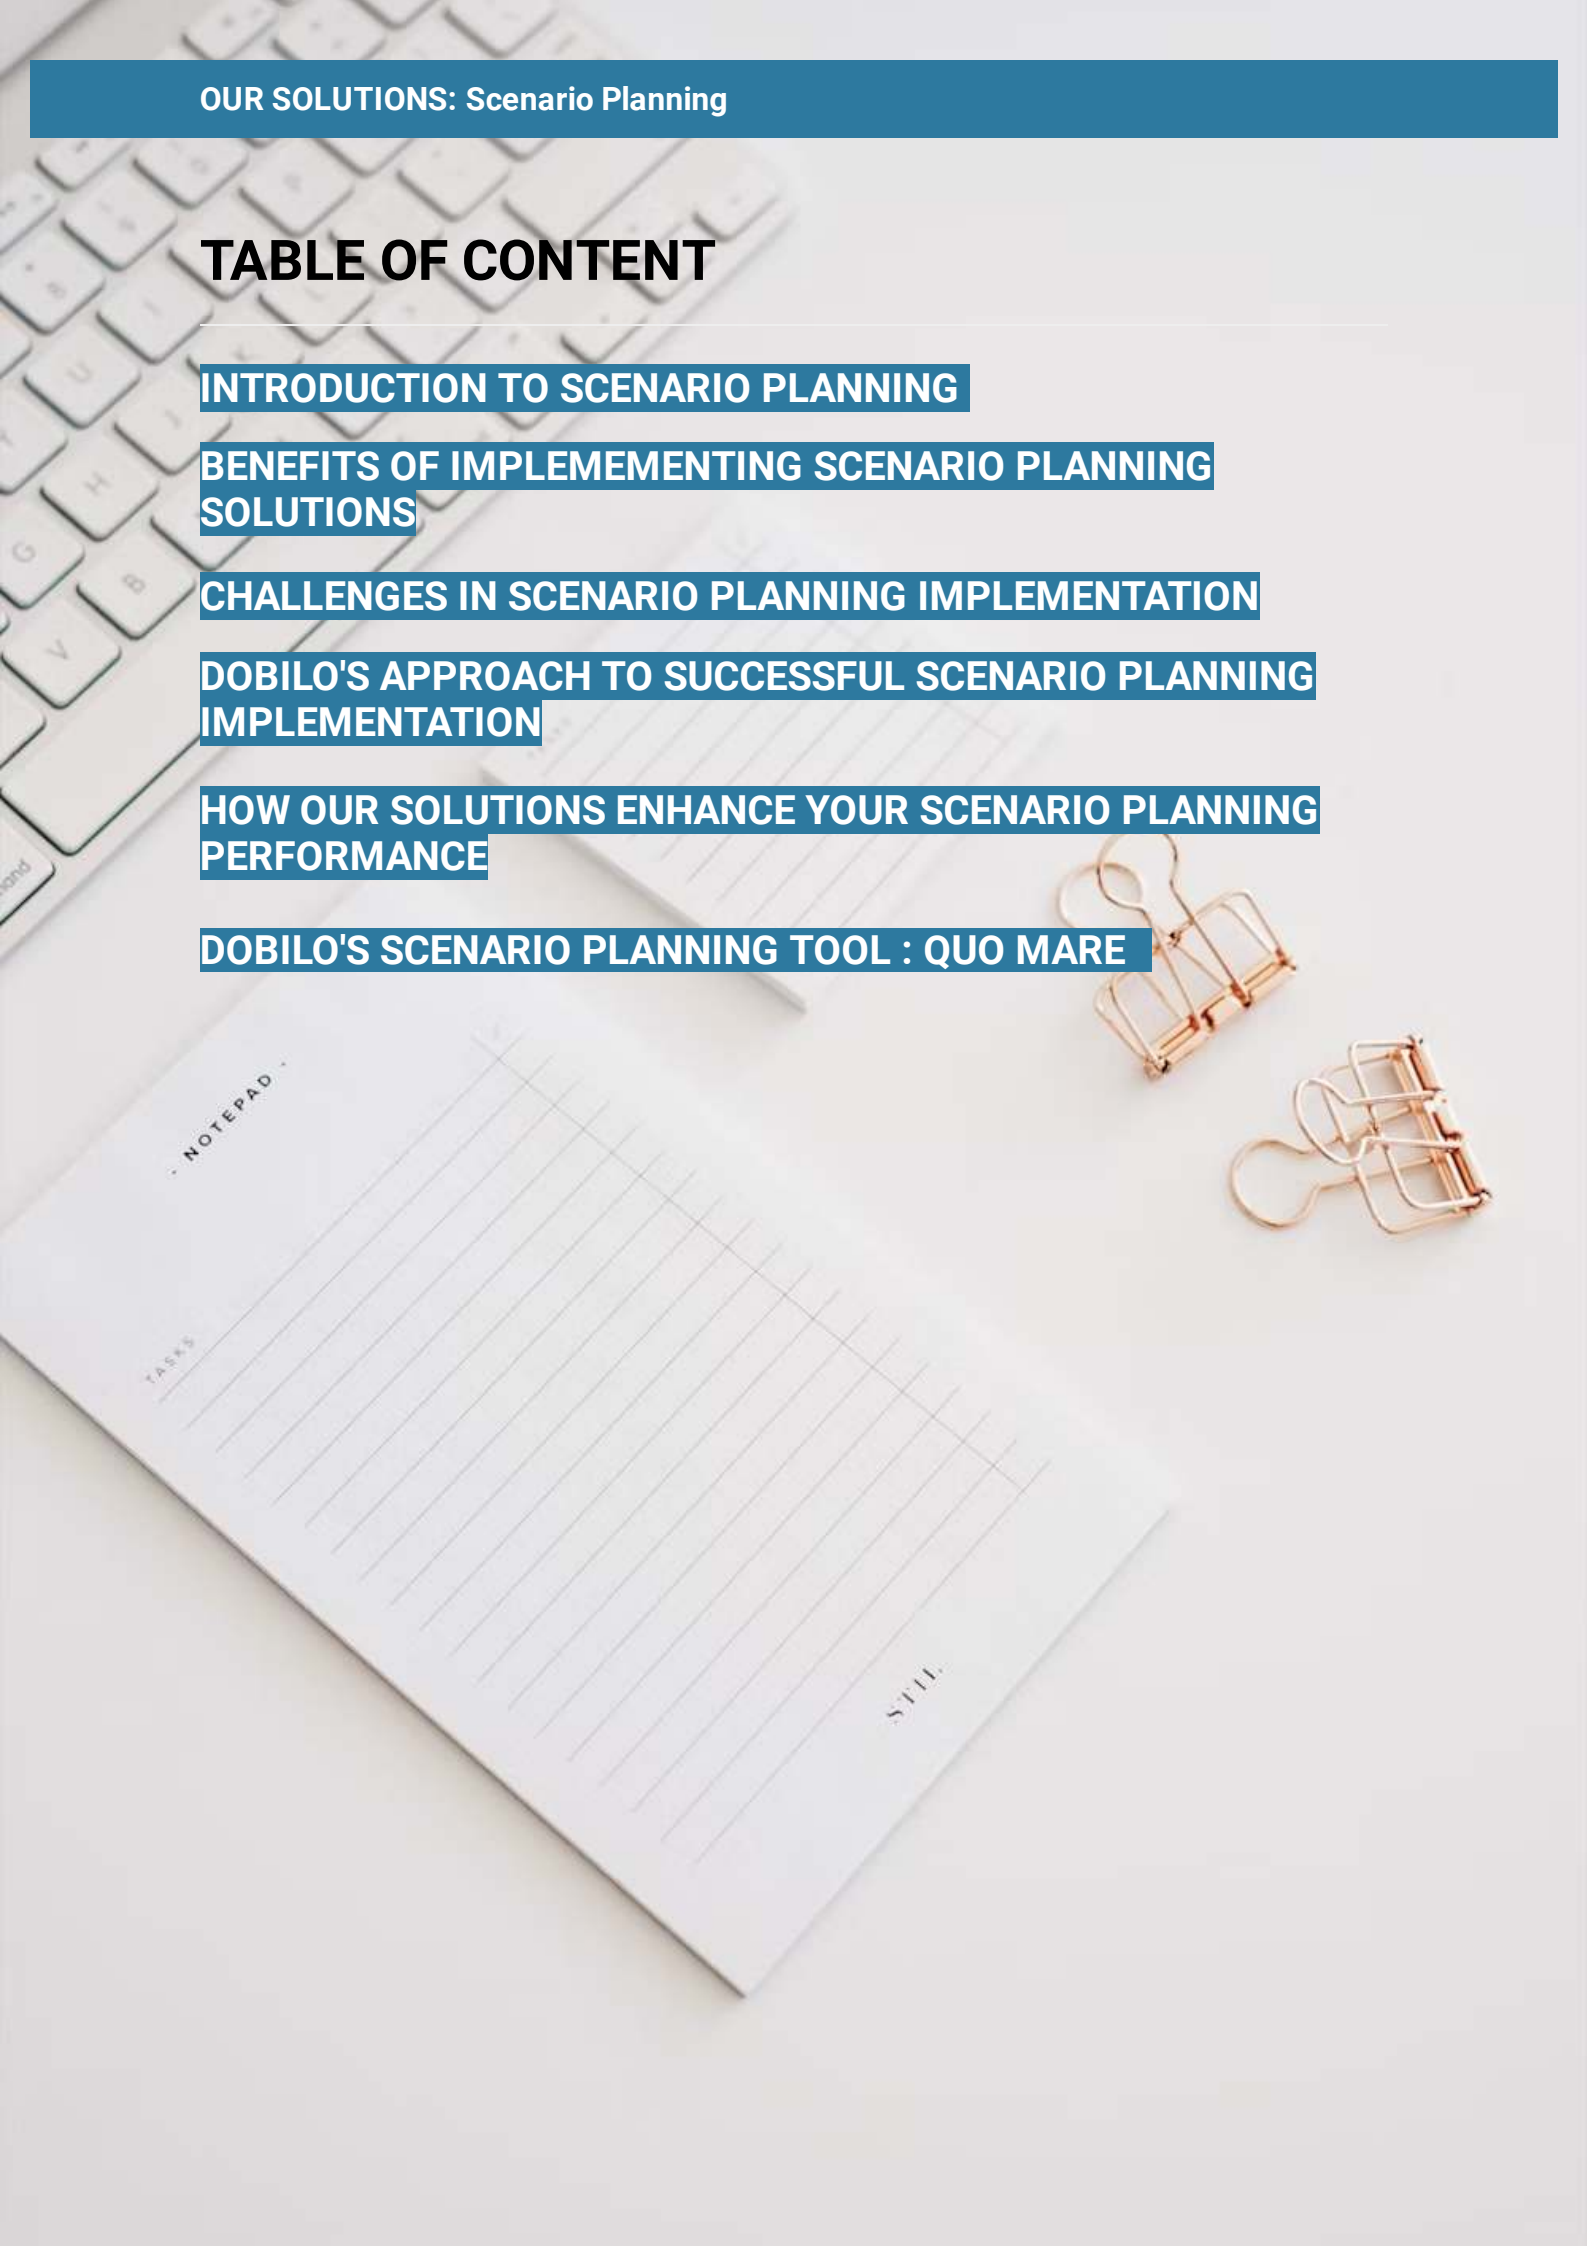 OUR SOLUTIONS: Scenario Planning
TABLE OF CONTENT
INTRODUCTION TO SCENARIO PLANNING
BENEFITS OF IMPLEMEMENTING SCENARIO PLANNING
SOLUTIONS
CHALLENGES IN SCENARIO PLANNING IMPLEMENTATION
DOBILO'S APPROACH TO SUCCESSFUL SCENARIO PLANNING
IMPLEMENTATION
HOW OUR SOLUTIONS ENHANCE YOUR SCENARIO PLANNING
PERFORMANCE
DOBILO'S SCENARIO PLANNING TOOL : QUO MARE
- NOTEPAD -
TASKS
STIL
U
H
G
B
V